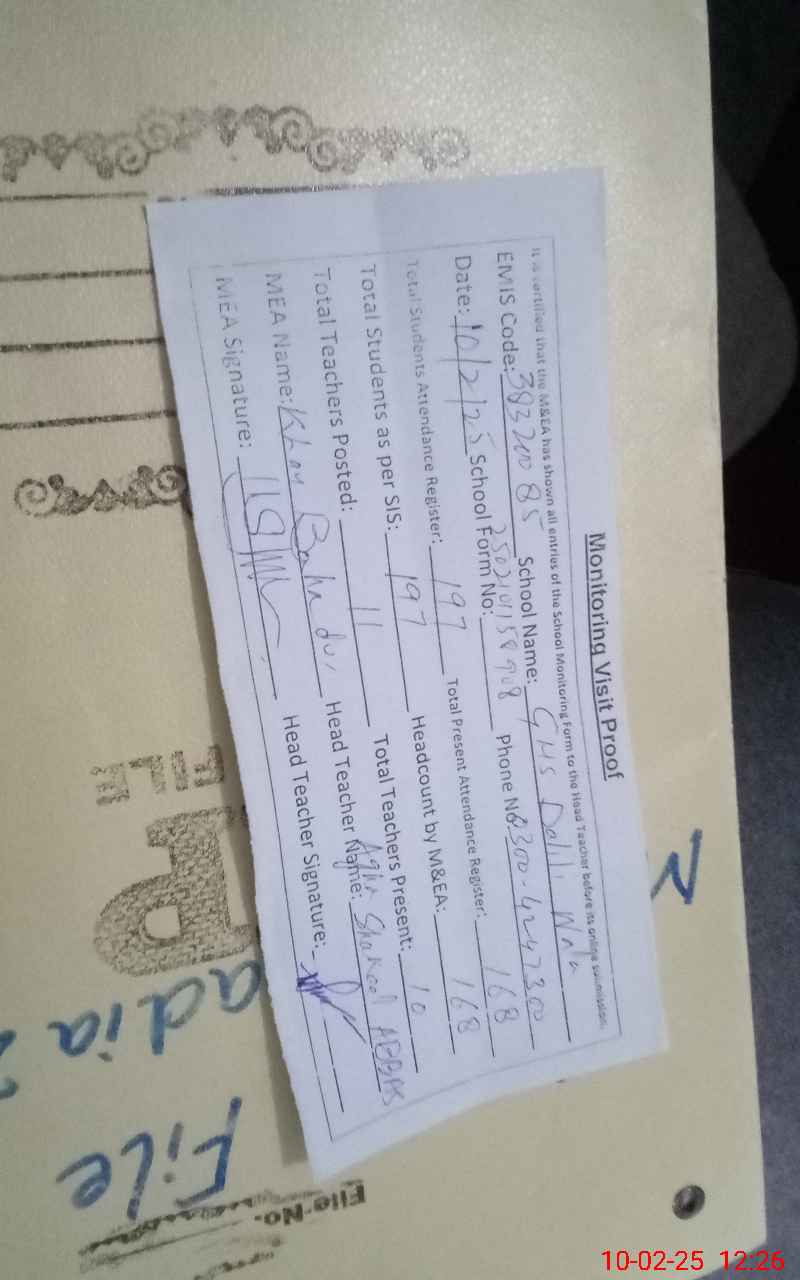 Monitoring Visit Proof
It is certified that the M&EA has shown all entries of the School Monitoring Form to the Head Teacher before its online submission.
EMIS Code: 38320085 School Name: GHS Dalili Wala
Date: 10/2/25 School Form No: 2502101158908 Phone No. 0300-4247300
Total Students Attendance Register: 197 Total Present Attendance Register: 168
Total Students as per SIS: 197 Headcount by M&EA: 168
Total Teachers Posted: 11 Total Teachers Present: 10
MEA Name: Khan Bahadur Head Teacher Name: Agha Shakeel ABBAS
MEA Signature: Head Teacher Signature:
File No.
File
adia
10-02-25 12:26